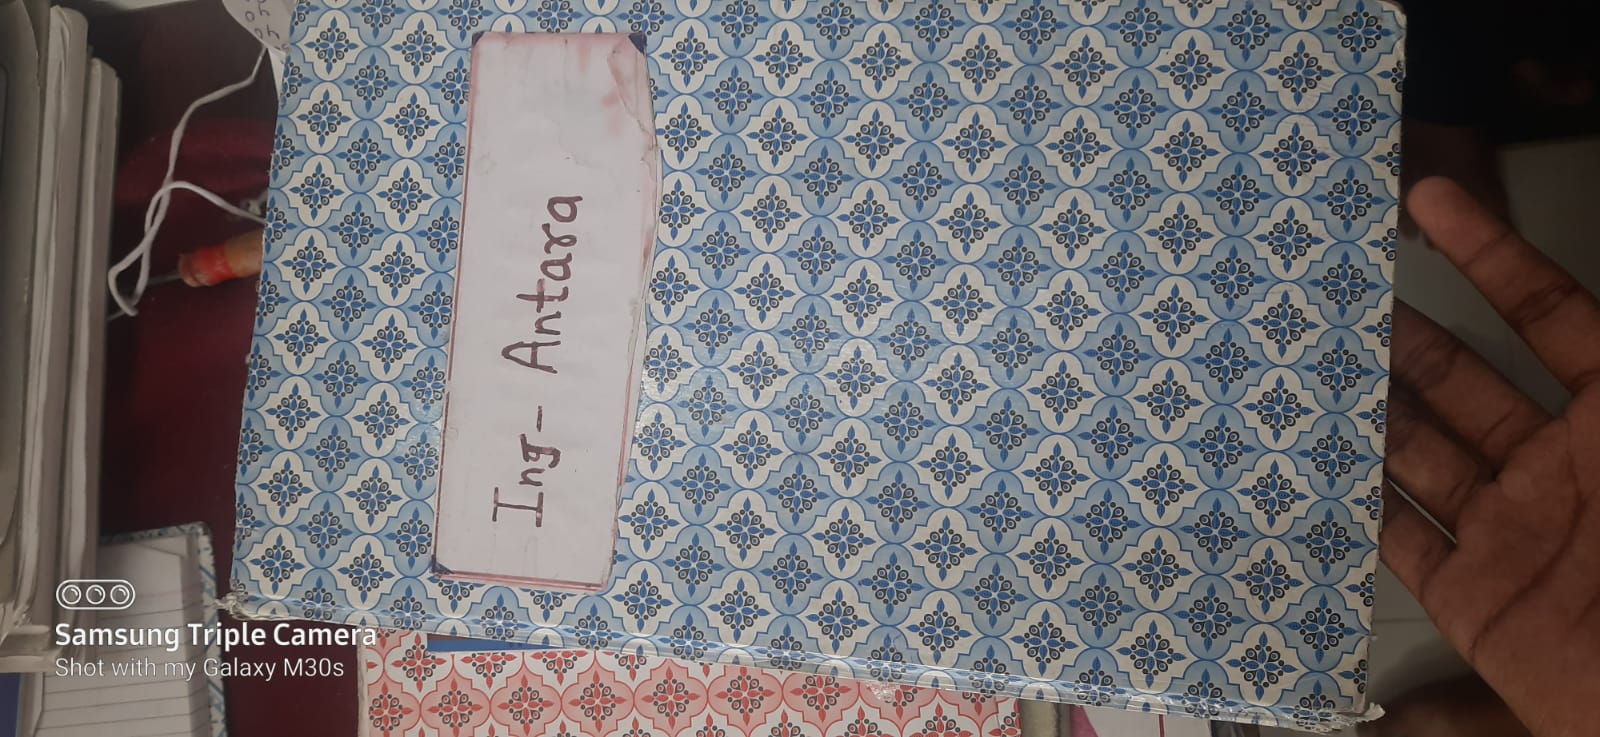 Ing- Antara
Samsung Triple Camera
Shot with my Galaxy M30s